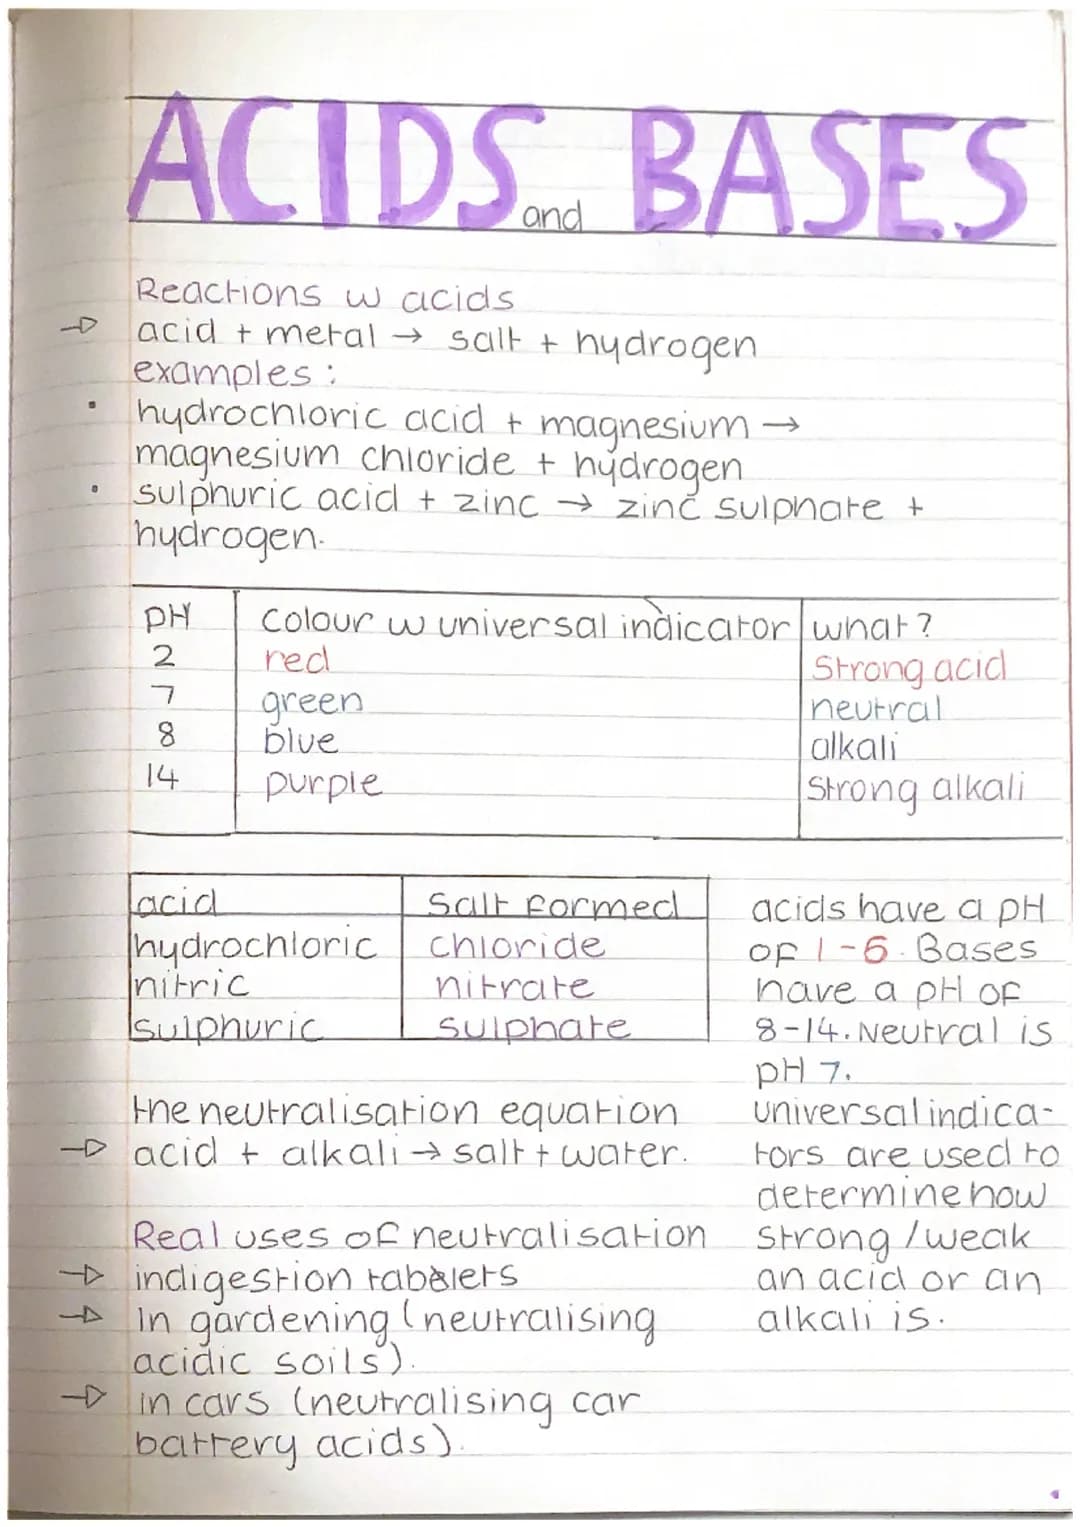 ACIDS and BASES
Reactions w acids
→ acid + metal → salt + hydrogen
examples :
• hydrochloric acid + magnesium →
magnesium chloride + hydrogen
• sulphuric acid + zinc → zinc sulphate +
hydrogen.
pH colour w universal indicator what?
2 red strong acid
7 green neutral
8 blue alkali
14 purple strong alkali
acid salt formed
hydrochloric chloride
nitric nitrate
sulphuric sulphate
acids have a pH
of 1-6. Bases
have a pH of
8-14. Neutral is
pH 7.
universal indica-
tors are used to
determine how
strong/weak
an acid or an
alkali is.
the neutralisation equation
→ acid + alkali → salt + water.
Real uses of neutralisation
→ indigestion tablets
→ In gardening (neutralising
acidic soils).
→ in cars (neutralising car
battery acids).